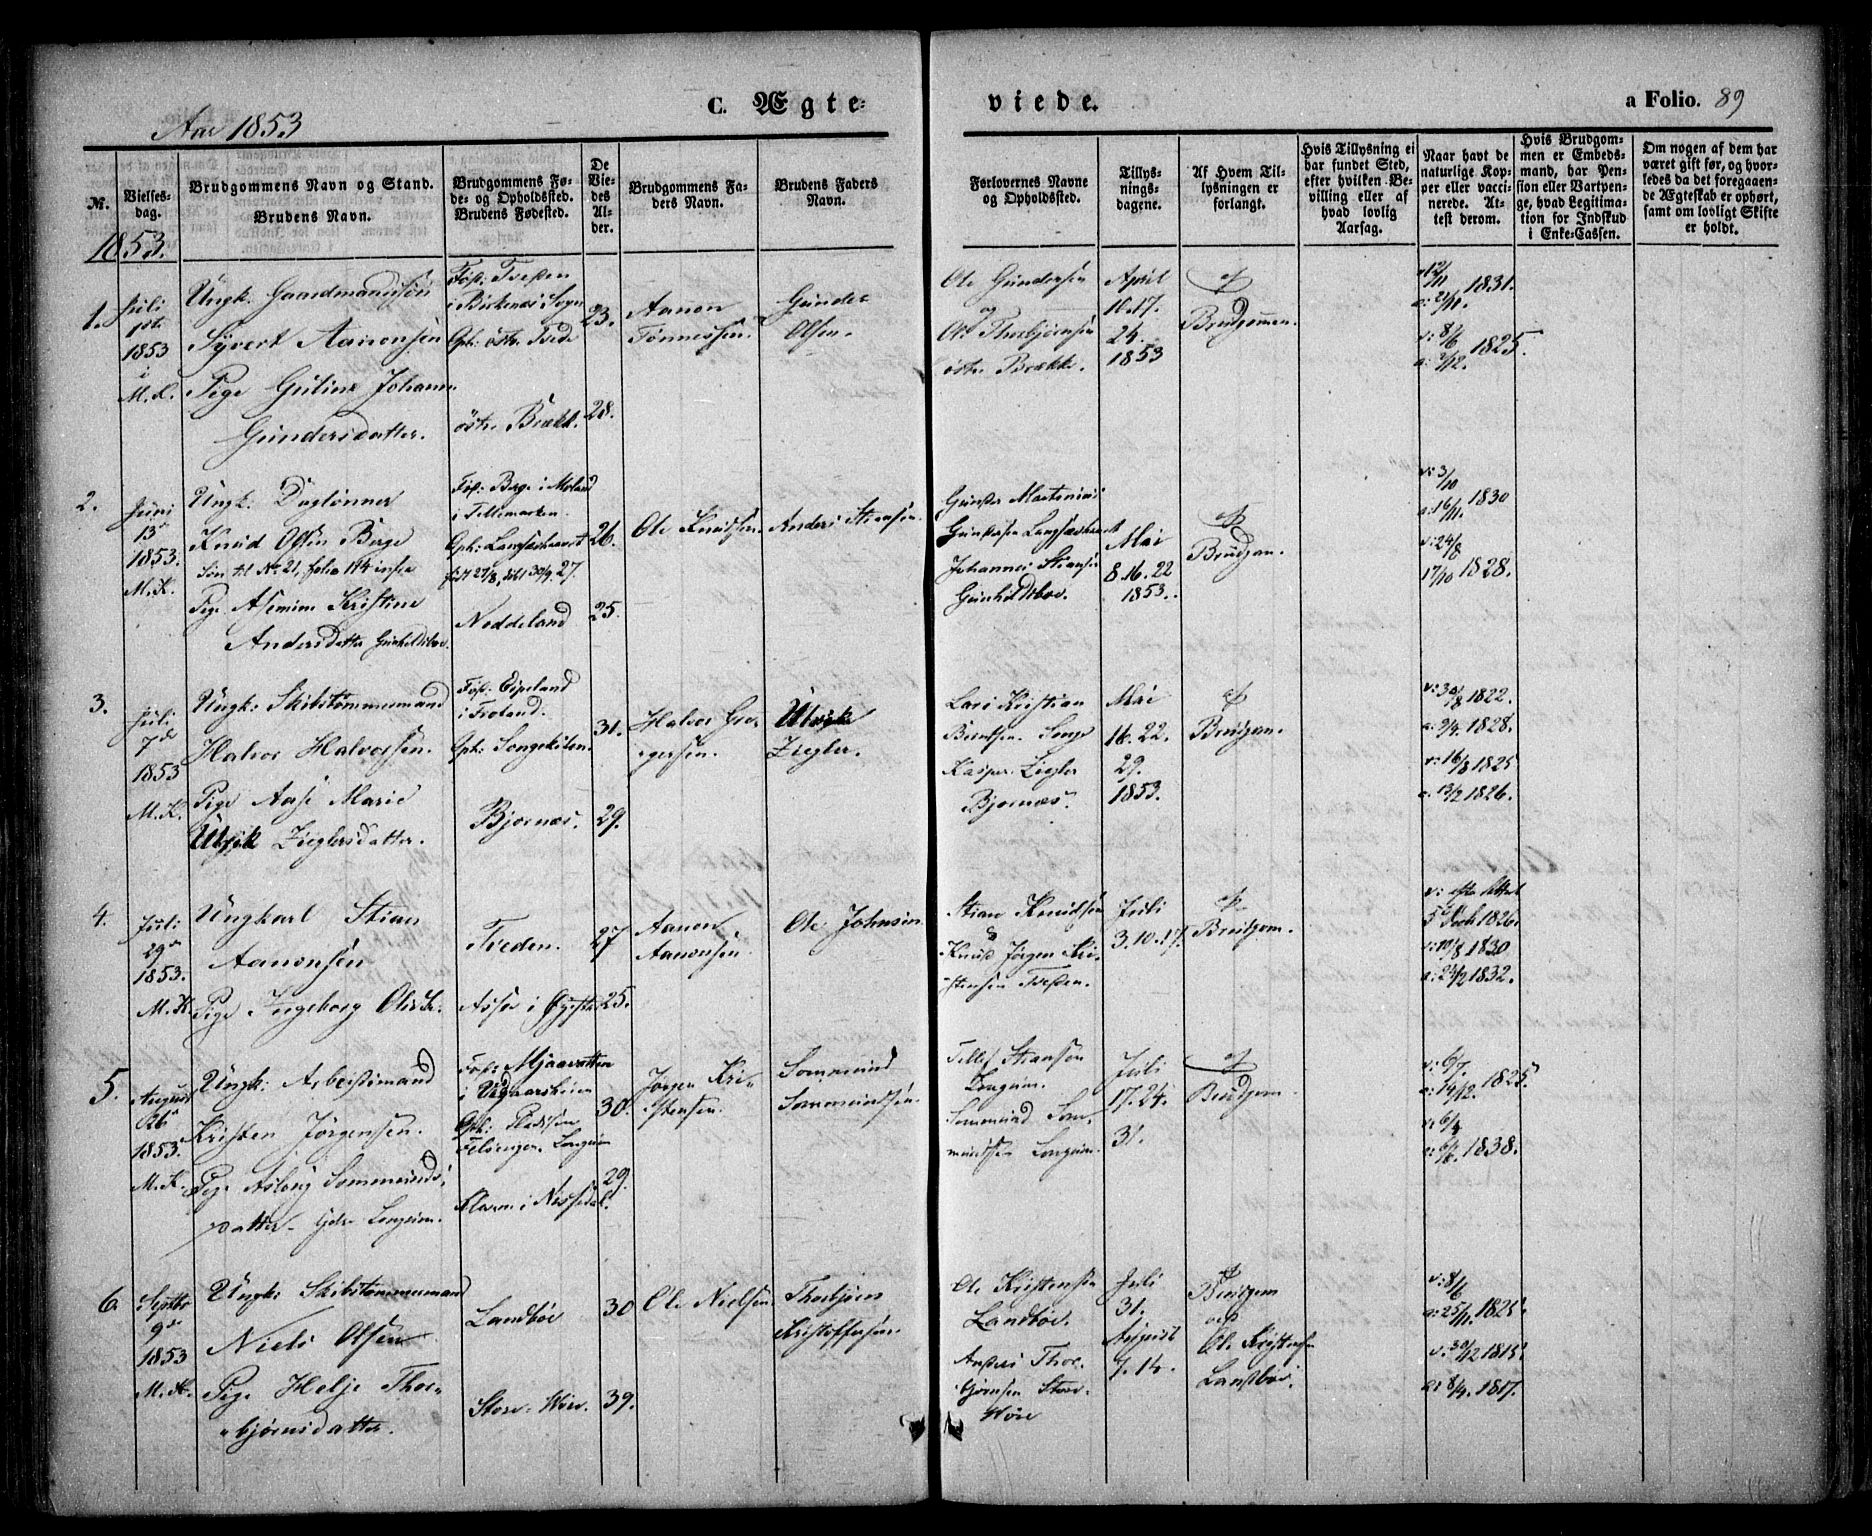 Aar 1853
C. Ægte-
viede.
a Folio. 89
N.
Vielses-
dag.
Brudgommens Navn og Stand.
Brudens Navn.
Brudgommens Fø-
de- og Opholdsted.
Brudens Fødested.
De
Vie-
des
Al-
der.
Brudgommens Fa-
ders Navn.
Brudens Faders
Navn.
Forlovernes Navne
og Opholdsted.
Tillys-
nings-
dagene.
Af Hvem Til-
lysningen er
forlangt.
Hvis Tillysning ei
har fundet Sted,
efter hvilken Be-
villing eller af
hvad lovlig
Aarsag.
Naar havt de
naturlige Kop-
per eller vacci-
nerede. At-
test derom.
Hvis Brudgom-
men er Embeds-
mand, har Pen-
sion eller Vartpen-
ge, hvad Legitima-
tion for Indskud
i Enke-Cassen.
Om nogen af dem har
været gift før, og hvor-
ledes da det foregaaen-
de Ægteskab er ophørt,
samt om lovligt Skifte
er holdt.
1853.
1.
Juli
1ste
1853
i
M. K.
Ungk. Gaardmandssøn
Syvert Aanonsen
Pige Guline Johanne
Gundersdatter.
Fød: Tveden
i Birkenes Sogn
Oph: østre
østre Brække.
23.
28.
Aanon
Tönnessen.
Gunder
Olsen.
Ole Gundersen
og
Ole Thorbjørnsen
østre Brække.
April
10. 17.
24.
1853
af
Brudgommen.
v: 12/11
a: 21/11. 1831.
v: 8/6
a: 2/12. 1825.
2.
Juni
13de
1853.
M. K.
Ungk. Daglønner
Knud Olsen Berge
Søn til No 21, folio 114
Pige Asemine Kristine
Andersdatter Gunhildsboe.
Fød: Berge i Moland
i Tellemarken.
Oph:
født 27/8, døbt 30/9. 27.
Noddeland
26.
25.
Ole Knudsen.
Anders Stiansen.
Gunder Martinius
Gundersen
Johannes Stiansen
Gunhildsboe.
Mai
8. 16. 22
1853.
af
Brudgom.
v: 3/10
a: 16/11. 1830
v: 24/8
17/10 1828.
3.
Juli
7de
1853
M. K.
Ungk: Skibstømmermand
Halvor Halvorsen.
Pige Aase Marie
Ulrik Zieglersdatter.
Fød: Espeland
i Froland.
Oph: Songekilen.
Bjornæs.
31.
29.
Halvor Gre-
gersen.
Ulrik
Ziegler.
Lars Kristian
Berntsen. Songe
Kasper Ziegler
Bjornæs.
Mai
16. 22.
29.
1853.
af
Brudgom.
v: 30/8 1822.
a: 9/4. 1828.
v: 16/8 1825
a: 13/2 1826.
4.
Juli
29de
1853.
M. K.
Ungkarl Stian
Aanonsen
Pige Ingeborg Olisdr.
Tveden.
Asser i Øyestad
27
25.
Aanon
Aanonsen
Ole Johnsen
Stian Knudsen
&
Knud Jørgen Kri-
stensen Tveden.
Juli
3. 10. 17.
af
Brudgom.
v: efter Attest
5te 1826.
v: 10/8 1830
a: 24/2 1832.
5.
August
26de
1853.
M. K.
Ungk: Arbeidsmand
Kristen Jørgensen.
Pige Aslaug Sommunds-
datter. Longum.
Fød: Mjaavatten
i Vegaarsheien
Oph: Pladsen
Longum
i Nissedal.
30.
29.
Jørgen Kri-
stensen.
Sommund
Sommundsen.
Tellef Stiansen
Longum.
Sommund Som-
mundsen Longum.
Juli
17. 24.
31.
af
Brudgom.
v: 6/7.
a: 19/12. 1825.
v: 6/4
a: 6/6. 1838.
6.
Septbr
9de
1853
M. K.
Ungk: Skibstømmermand
Niels Olsen
Pige Helje Thor-
bjørnsdatter.
Landbøe
Store-Wore.
30
39.
Ole Nielsen
Thorbjørn
Kristoffersen.
Ole Kristensen
Landbøe.
Anders Thor-
bjørnsen Store
Wøre
Juli
31.
August
7. 14.
af
Brudgom
og
Ole Kristensen
Landbøe.
v: 8/6
a: 25/11. 1825.
v: 30/12 1815.
a: 8/4. 1817.